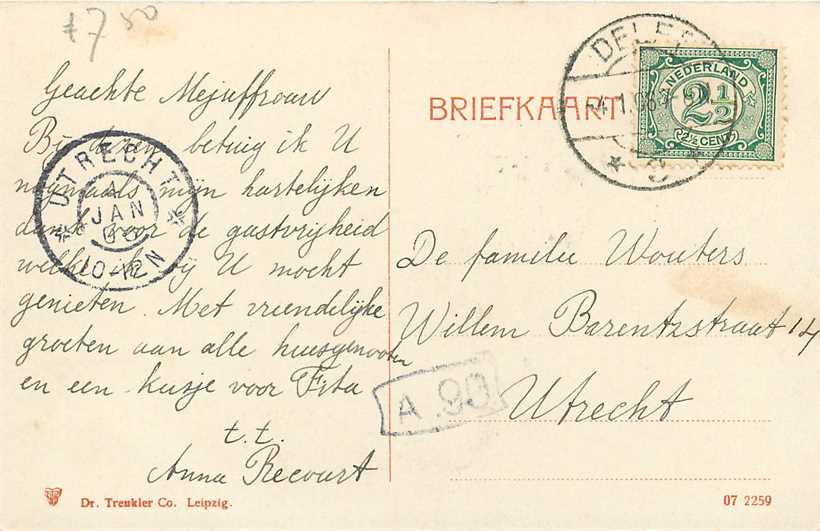 7 50
Geachte Mejuffrouw
Bij dezen betuig ik U
nogmaals mijn hartelijken
dank voor de gastvrijheid
welke ik bij U mocht
genieten. Met vriendelijke
groeten aan alle huisgenooten
en een kusje voor Fita
t.t.
Anna Recourt
UTRECHT
4
JAN
10-12N
Dr. Trenkler Co. Leipzig.
BRIEFKAART
DELFT
4.1.08
NEDERLAND
2½
2½ CENT
De familie Wouters
Willem Barentzstraat 14
Utrecht
A.90
07 2259